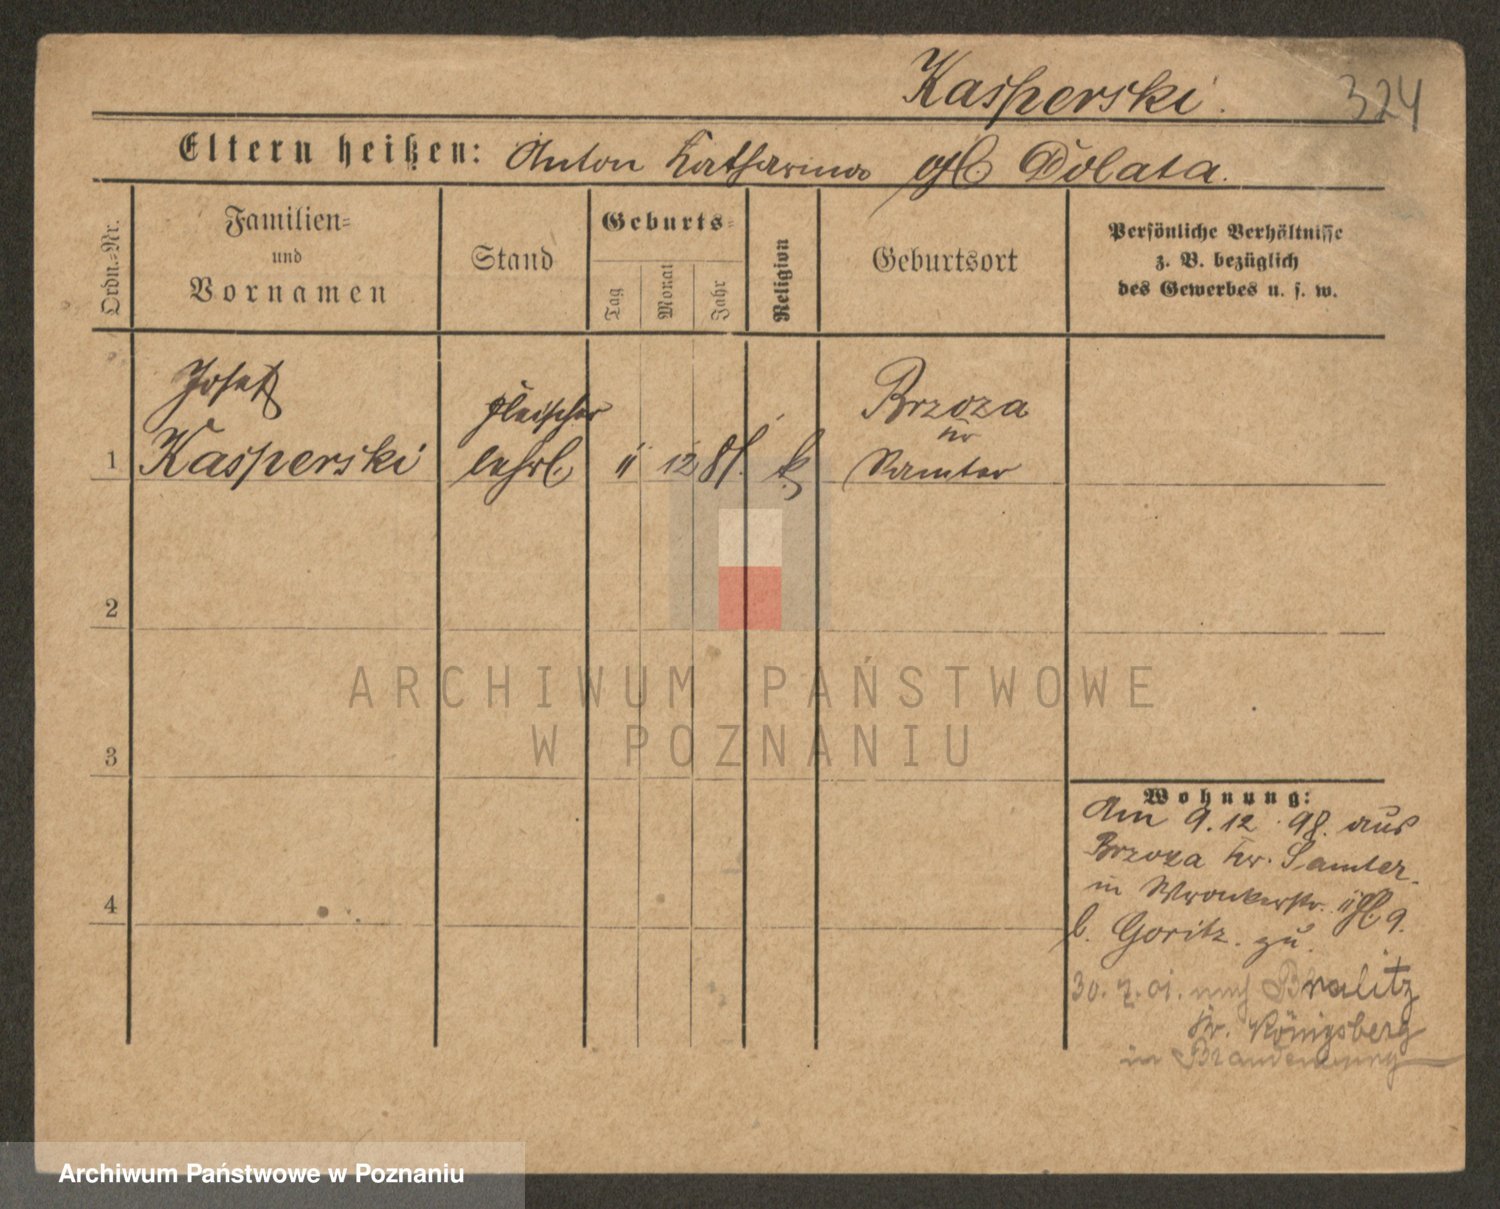 Kasperski.
324
Eltern heißen: Anton Katharina gb Dolata.
Ordn.=Nr.
Familien=
und
Vornamen
Stand
Geburts=
Tag
Monat
Jahr
Religion
Geburtsort
Persönliche Verhältnisse
z. B. bezüglich
des Gewerbes u. s. w.
Josef
Kasperski
Fleischer
lehrl.
11 12 81. k.
Brzoza
Kr
Samter
1
2
3
4
ARCHIWUM PAŃSTWOWE
W POZNANIU
Wohnung:
Am 9.12.98. aus
Brzoza Kr. Samter.
in Wronkerstr. 9.
b. Goritz. zu.
30. 7. 01. nach Bralitz
Kr. Königsberg
in Brandenburg
Archiwum Państwowe w Poznaniu